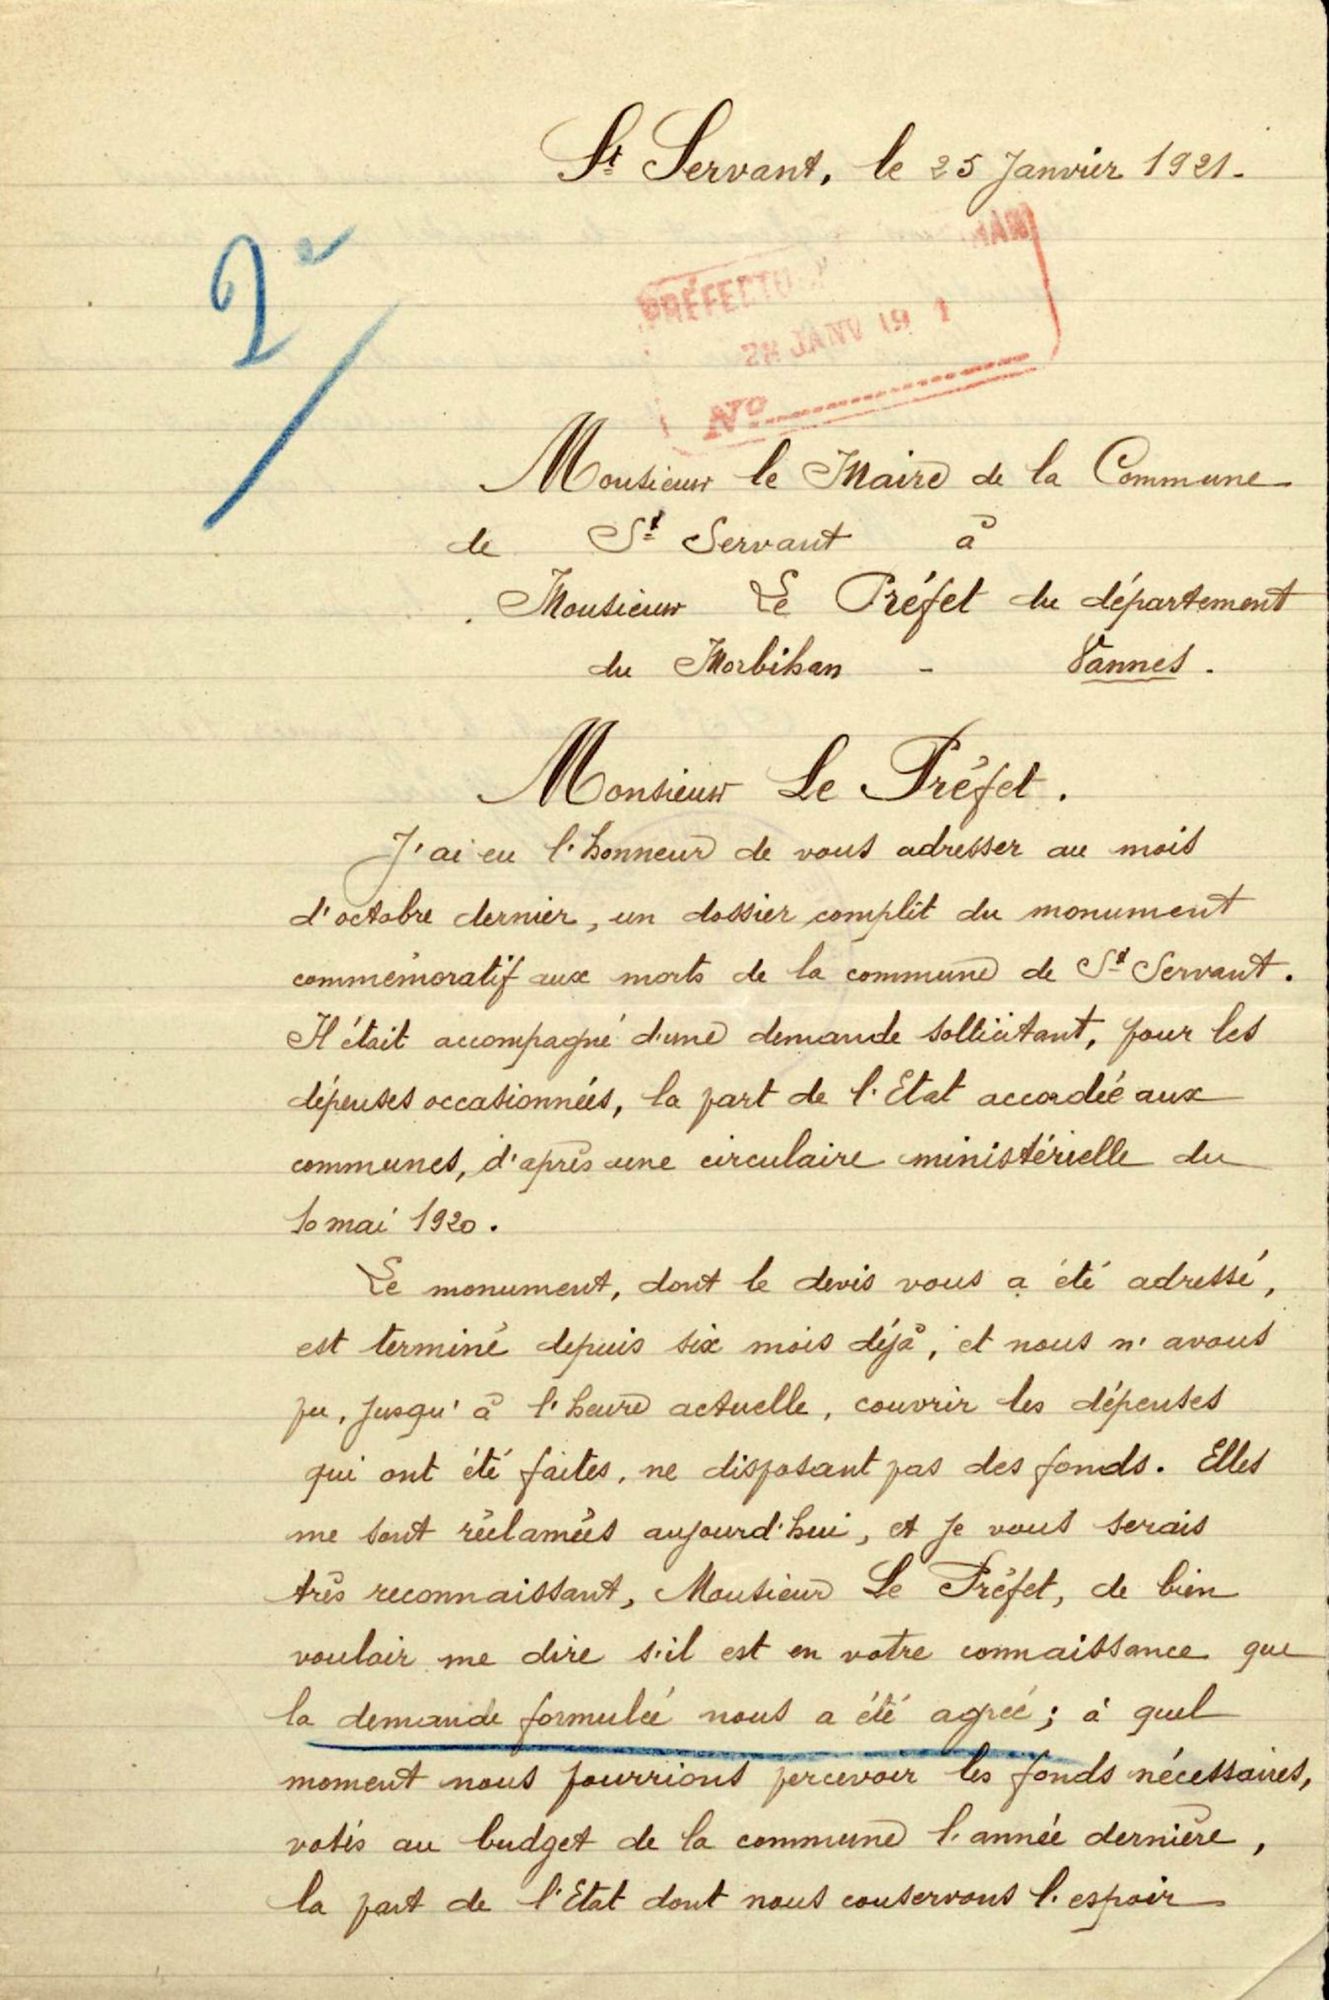 St Servant, le 25 Janvier 1921.
2e
PRÉFECTU
28 JANV 19 1
No
Monsieur le Maire de la Commune
de St Servant à
Monsieur Le Préfet du département
du Morbihan - Vannes.
Monsieur Le Préfet.
J'ai eu l'honneur de vous adresser au mois
d'octobre dernier, un dossier complet du monument
commémoratif aux morts de la commune de St Servant.
Il était accompagné d'une demande sollicitant, pour les
dépenses occasionnées, la part de l'Etat accordée aux
communes, d'après une circulaire ministérielle du
10 mai 1920.
Le monument, dont le devis vous a été adressé,
est terminé depuis six mois déjà, et nous n'avons
pu, jusqu'à l'heure actuelle, couvrir les dépenses
qui ont été faites, ne disposant pas des fonds. Elles
me sont réclamées aujourd'hui, et je vous serais
très reconnaissant, Monsieur Le Préfet, de bien
vouloir me dire s'il est en votre connaissance que
la demande formulée nous a été agréé; à quel
moment nous pourrions percevoir les fonds nécessaires,
votés au budget de la commune l'année dernière,
la part de l'Etat dont nous conservons l'espoir